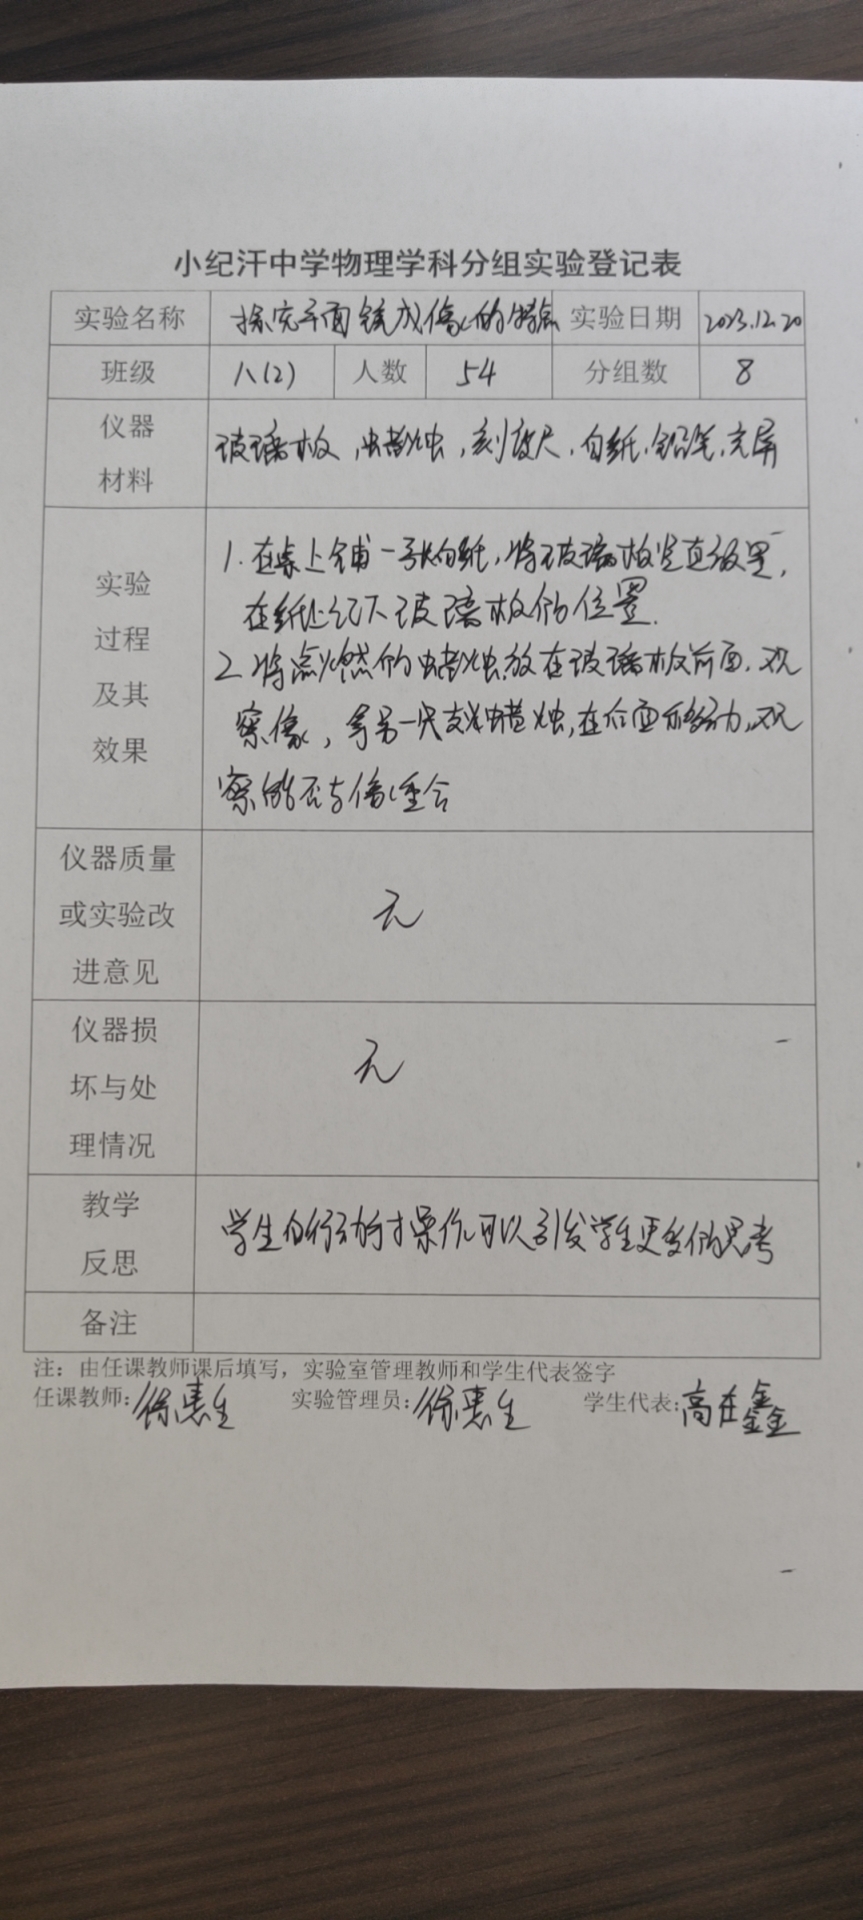 小纪汗中学物理学科分组实验登记表
实验名称 探究平面镜成像的特点 实验日期 2023.12.20
班级 八(2) 人数 54 分组数 8
仪器
材料
玻璃板,蜡烛,刻度尺,白纸,铅笔,光屏
实验
过程
及其
效果
1.在桌上铺一张白纸,将玻璃板竖直放置,
在纸上记下玻璃板的位置.
2.将点燃的蜡烛放在玻璃板前面.观
察像,拿另一只支蜡烛,在后面移动,观
察能否与像重合
仪器质量
或实验改
进意见
无
仪器损
坏与处
理情况
无
教学
反思
学生自行动手操作可以引发学生更多的思考
备注
注:由任课教师课后填写,实验室管理教师和学生代表签字
任课教师:徐惠生 实验管理员:徐惠生 学生代表:高在鑫